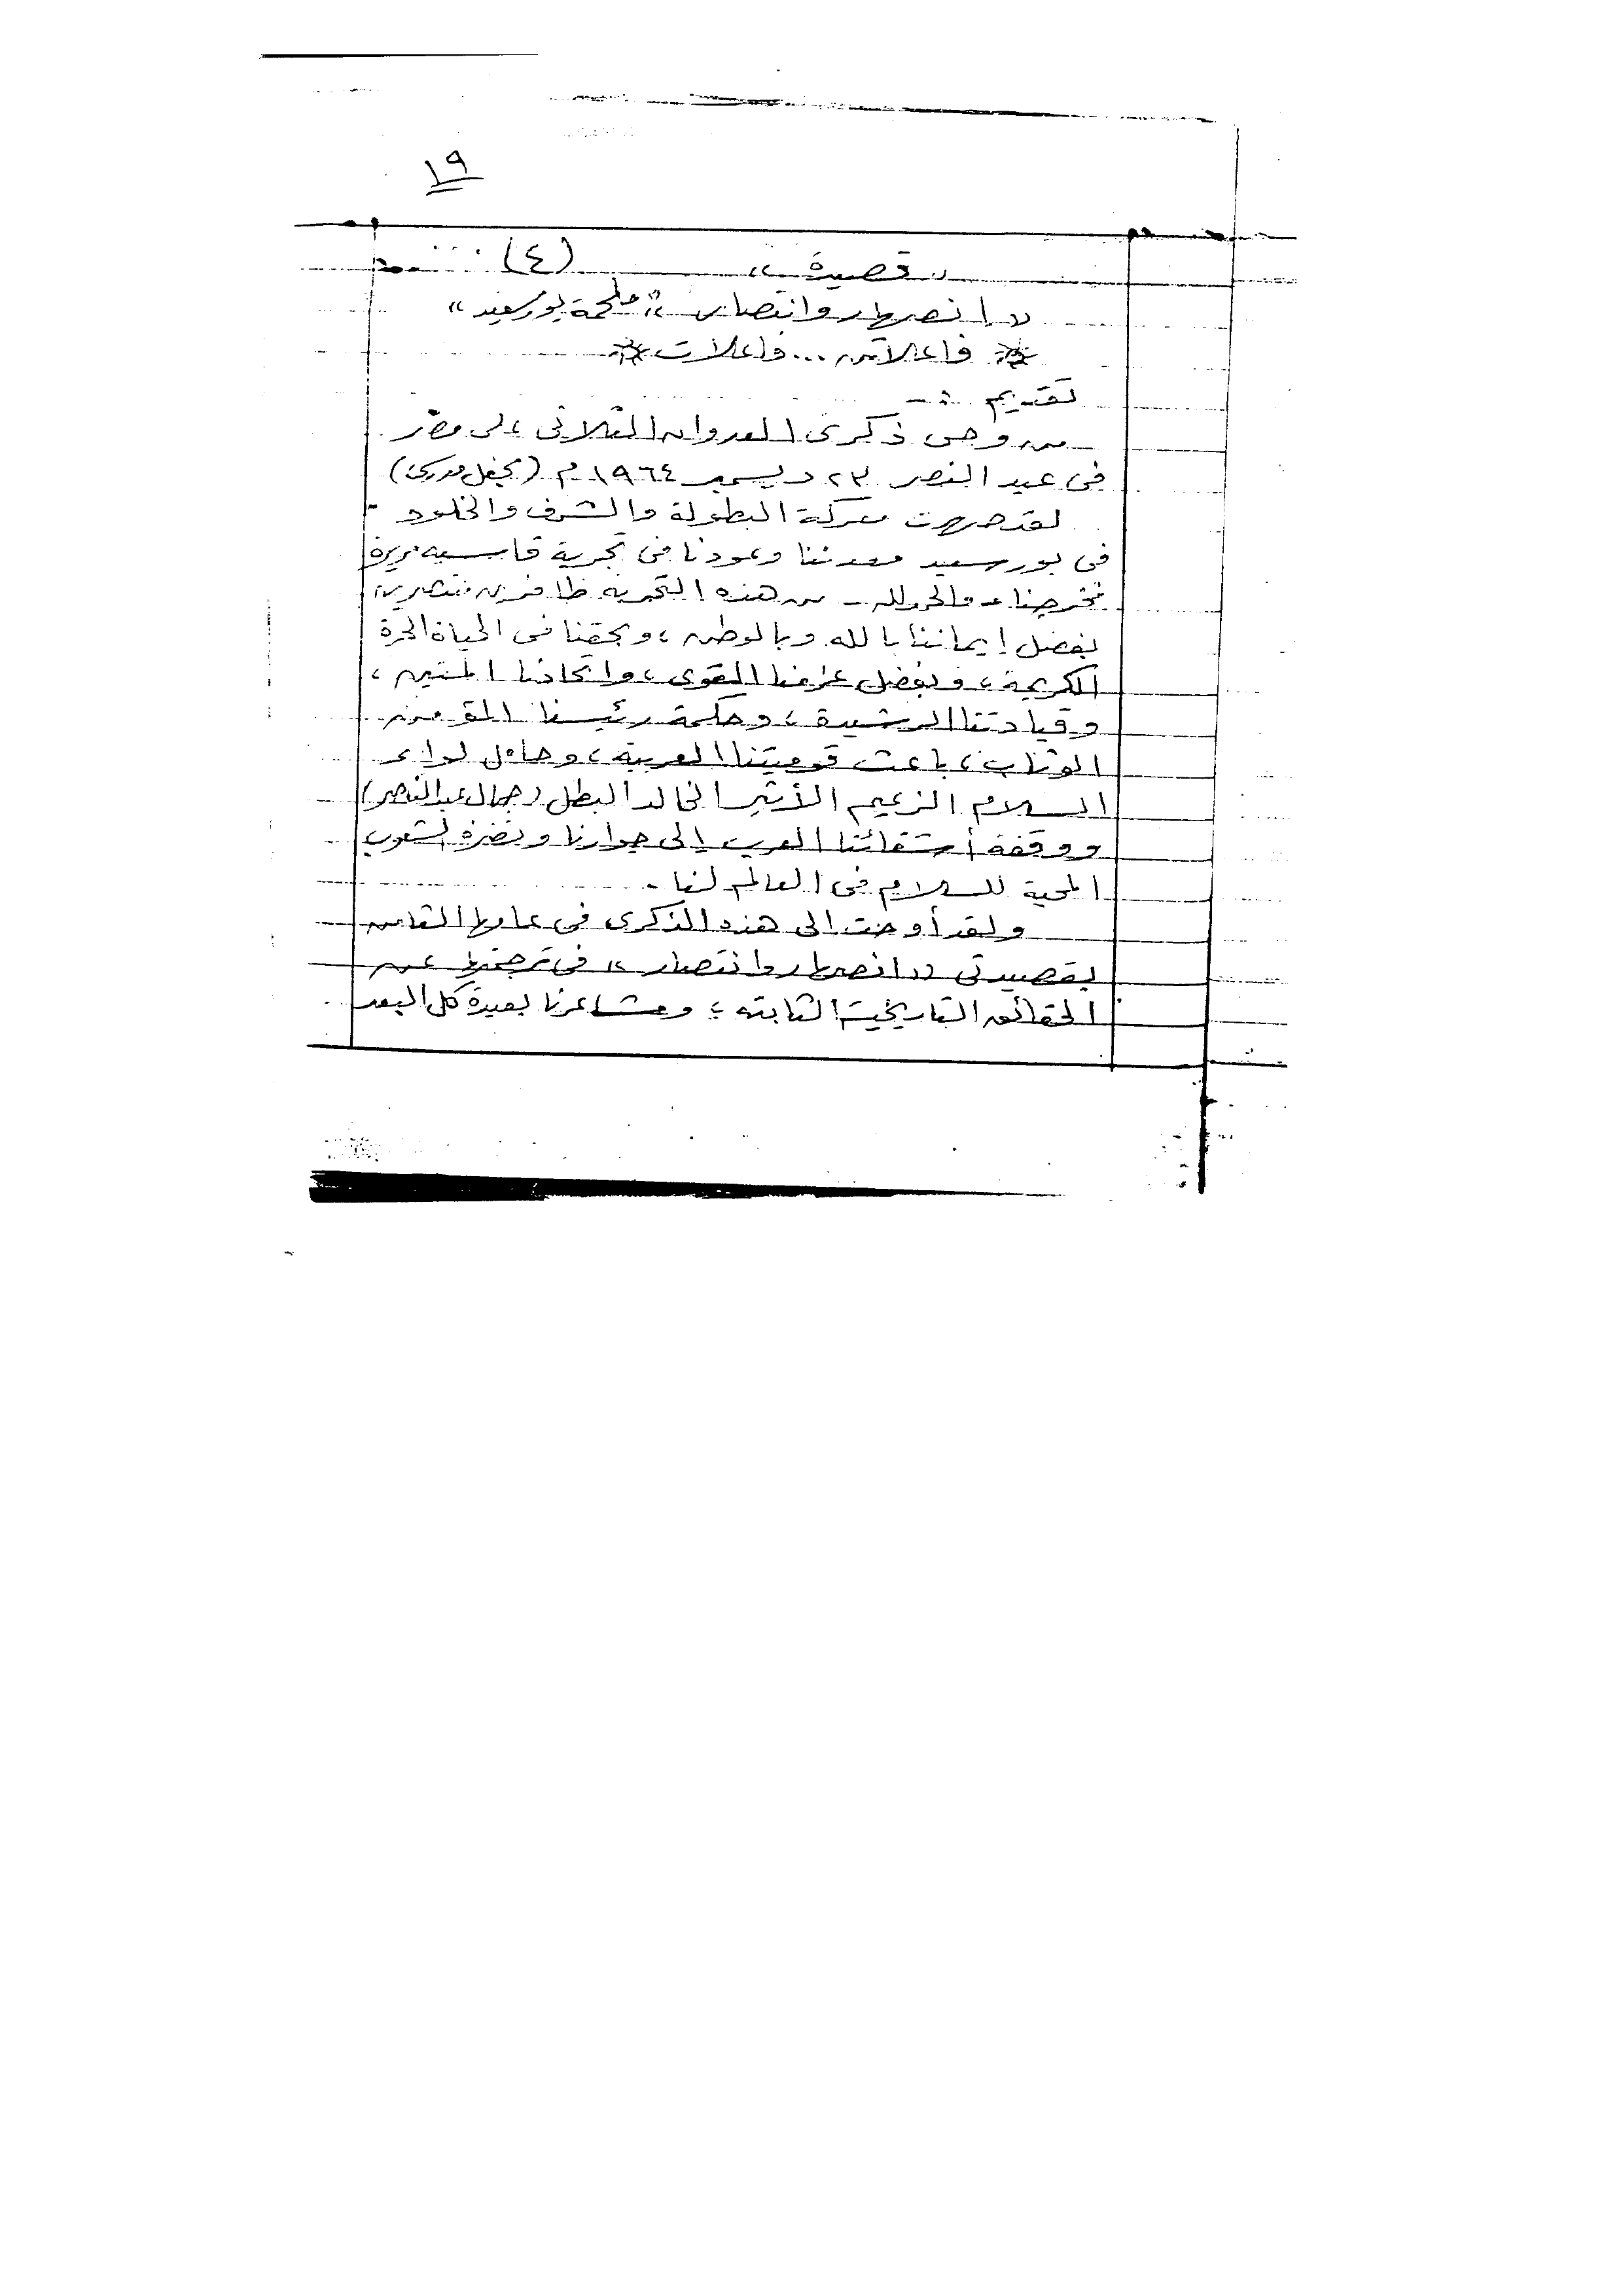 ١٩
« قصيدة » (٤)
« انصهار وانتصار » « ملحمة بورسعيد »
* فاعلاتن ... فاعلات *
تقديم :-
من وحى ذكرى العدوان الثلاثى على مصر
فى عيد النصر ٢٣ ديسمبر ١٩٦٤ م (بحفل مدرسى)
لقد صهرت معركة البطولة والشرف والخلود -
فى بورسعيد معدننا وعودنا فى تجربة قاسيه مريرة
فخرجنا - والحمد لله - من هذه التجربة ظافرين منتصرين
بفضل إيماننا بالله وبالوطن ، وبحقنا فى الحياة الحرة
الكريمة ، وبفضل عزمنا القوى ، واتحادنا المتين ،
وقيادتنا الرشيدة ، وحكمة رئيسنا المؤمن
الوثاب ، باعث قوميتنا العربية ، وحامل لواء
السلام الزعيم الأثير الخالد البطل (جمال عبد الناصر)
ووقفة أشقائنا العرب إلى جوارنا ونصرة الشعوب
المحبة للسلام فى العالم لنا .
ولقد أوحت إلى هذه الذكرى فى عامها الثامن
بقصيدتى « انصهار وانتصار » فى ترجمتها عن
الحقائق التاريخية الثابته ؛ ومشاعرنا بعيدة كل البعد